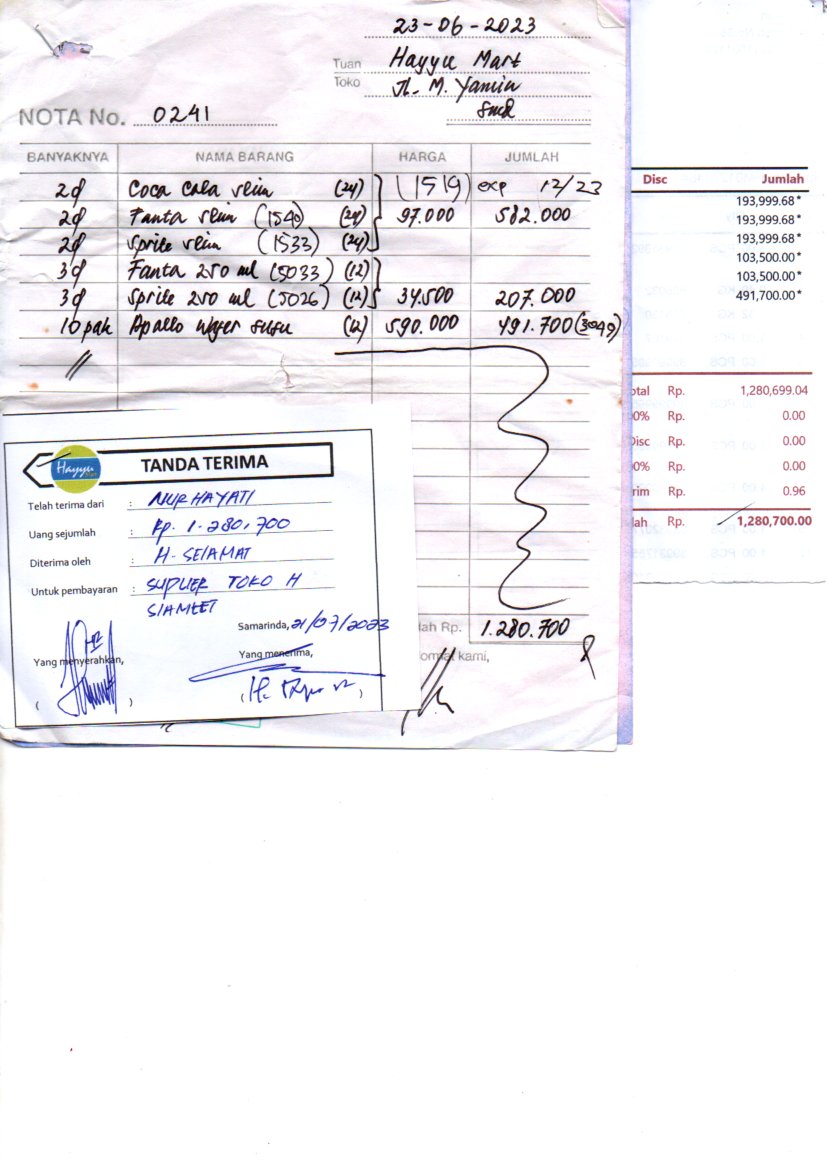 23-06-2023
Tuan Hayyu Mart
Toko Jl. M. Yamin
Smd
NOTA No. 0241
BANYAKNYA NAMA BARANG HARGA JUMLAH
2d Coca Cola slim (24) (1519) exp 12/23
2d Fanta slim (1540) (24) 97.000 582.000
2d Sprite slim (1533) (24)
3d Fanta 250 ml (5033) (12)
3d Sprite 250 ml (5026) (12) 34.500 207.000
10 pak Apollo wafer susu (12) 590.000 491.700 (3049)
lah Rp. 1.280.700
ormat kami,
Hayyu
TANDA TERIMA
Telah terima dari : NURHAYATI
Uang sejumlah : Rp. 1.280.700
Diterima oleh : H. SELAMAT
Untuk pembayaran : SUPLIER TOKO H
SLAMET
Samarinda, 21/07/2023
Yang menyerahkan, Yang menerima,
( ) ( )
Disc Jumlah
193,999.68*
193,999.68*
193,999.68*
103,500.00*
103,500.00*
491,700.00*
otal Rp. 1,280,699.04
0% Rp. 0.00
Disc Rp. 0.00
0% Rp. 0.00
rim Rp. 0.96
lah Rp. 1,280,700.00